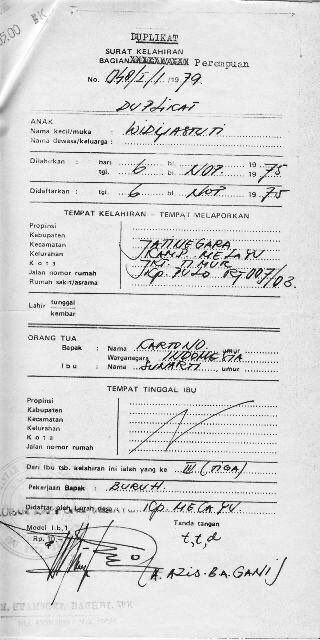 DUPLIKAT
SURAT KELAHIRAN
BAGIAN Perempuan
No. 048/I/1/1979
DUPLIKAT
ANAK
Nama kecil/muka : WIDIJASTUTI
Nama dewasa/keluarga :
Dilahirkan : hari tgl. 6 bl. NOP. 1975
Didaftarkan : hari tgl. 6 bl. NOP 1975
TEMPAT KELAHIRAN — TEMPAT MELAPORKAN
Propinsi
Kabupaten
Kecamatan JATINEGARA
Kelurahan KAMP. MELAYU
Kota JKT. TIMUR
Jalan nomor rumah Kp. PULO RT 007/03.
Rumah sakit/asrama
Lahir tunggal
kembar
ORANG TUA
Bapak : Nama KARTONO umur
Warganegara INDONESIA
Ibu : Nama SUNARTI umur
TEMPAT TINGGAL IBU
Propinsi
Kabupaten
Kecamatan
Kelurahan
Kota
Jalan nomor rumah
Dari Ibu tsb. kelahiran ini ialah yang ke III (TIGA)
Pekerjaan Bapak : BURUH.
Didaftar oleh Lurah desa Kp. MELAYU.
Model I.b.1 Tanda tangan
Rp. 10.- t,t,d
(A. AZIS. BA. GANI)